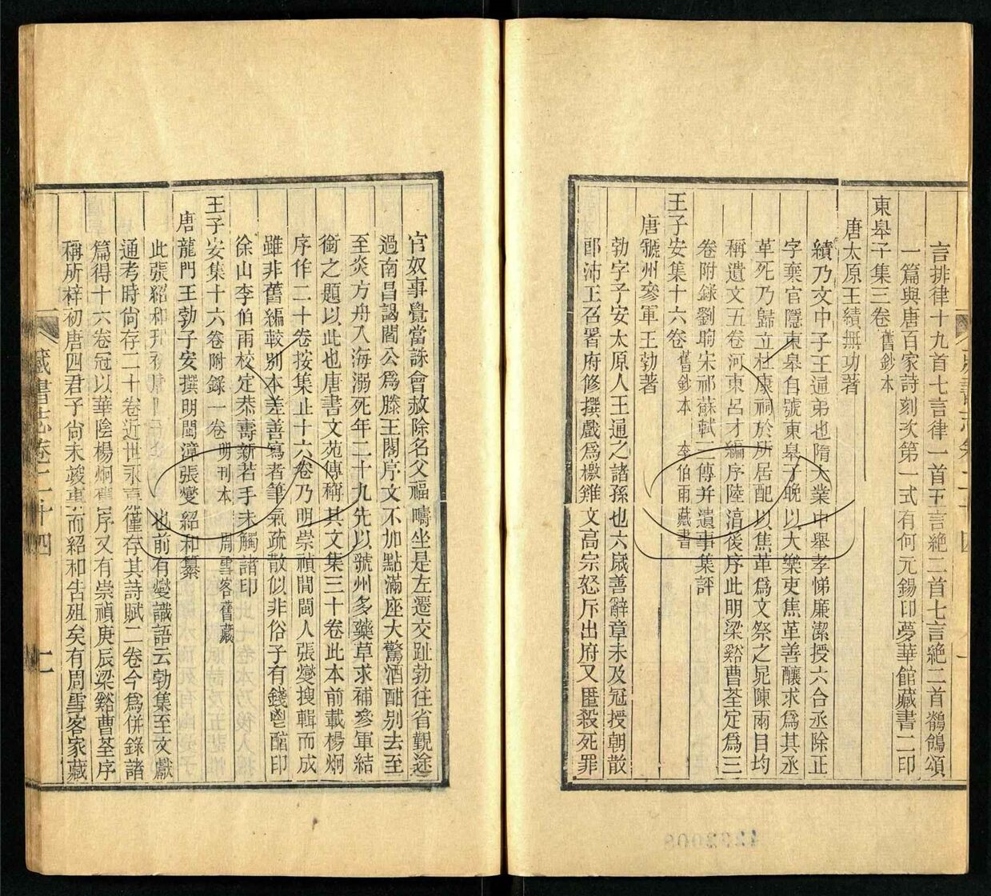 言排律十九首七言律一首五言絶二首七言絶二首鶺鴒頌
一篇與唐百家詩刻次第一式有何元錫印夢華館藏書二印
東皋子集三卷 舊鈔本
唐太原王績無功著
績乃文中子王通弟也隋大業中舉孝悌廉潔授六合丞除正
字棄官隱東皋自號東皋子晚以大樂吏焦革善釀求爲其丞
革死乃歸立杜康祠於所居配以焦革爲文祭之晁陳兩目均
稱遺文五卷河東呂才編序陸淯後序此明梁谿曹荃定爲三
卷附錄劉昫宋祁蘇軾二傳并遺事集評
王子安集十六卷 舊鈔本 李伯雨藏書
唐虢州參軍王勃著
勃字子安太原人王通之諸孫也六歲善辭章未及冠授朝散
郎沛王召署府修撰戲爲檄雞文高宗怒斥出府又匿殺死罪
官奴事覺當誅會赦除名父福疇坐是左遷交趾勃往省覲途
過南昌謁閻公爲滕王閣序文不加點滿座大驚酒酣别去至
至炎方舟入海溺死年二十九先以虢州多藥草求補參軍結
銜之題以此也唐書文苑傳稱其文集三十卷此本前載楊炯
序作二十卷按集止十六卷乃明崇禎間閩人張燮搜輯而成
雖非舊編較别本差善寫者筆氣疏散似非俗子有錢鬯齍印
徐山李伯雨校定恭壽新若手未觸諸印
王子安集十六卷附錄一卷 明刊本 周雪客舊藏
唐龍門王勃子安撰明閩漳張燮紹和纂
此張紹和刊 也前有燮識語云勃集至文獻
通考時尚存二十卷近世 僅存其詩賦二卷今爲併錄諸
篇得十六卷冠以華陰楊炯 序又有崇禎庚辰梁谿曹荃序
稱所梓初唐四君子尚未竣事而紹和告殂矣有周雪客家藏
藏書志卷二十四